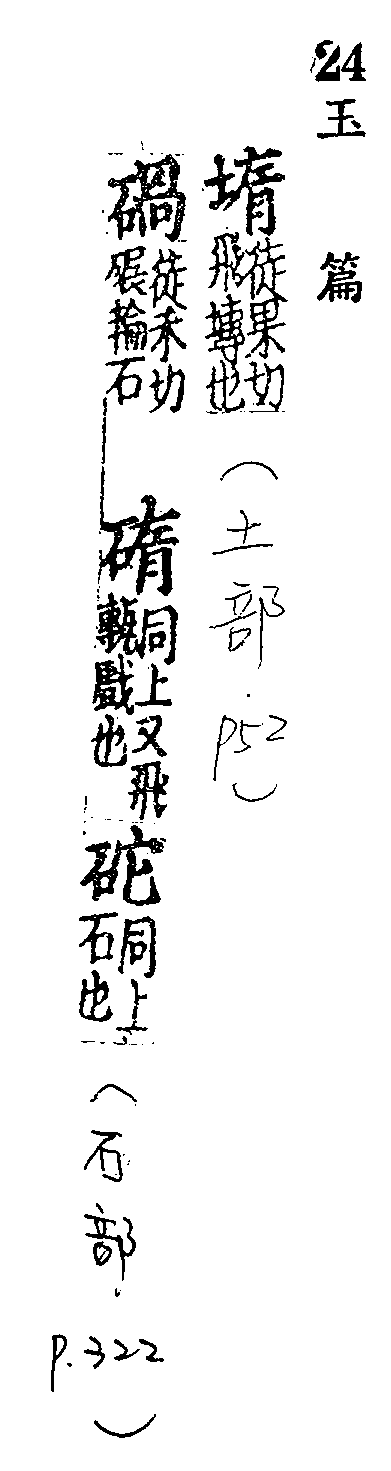 24玉篇
堶徒果切飛塼也(土部.p52)
碢徒禾切碾輪石
同上又飛甎戲也
砣同上石也(石部.p.322)